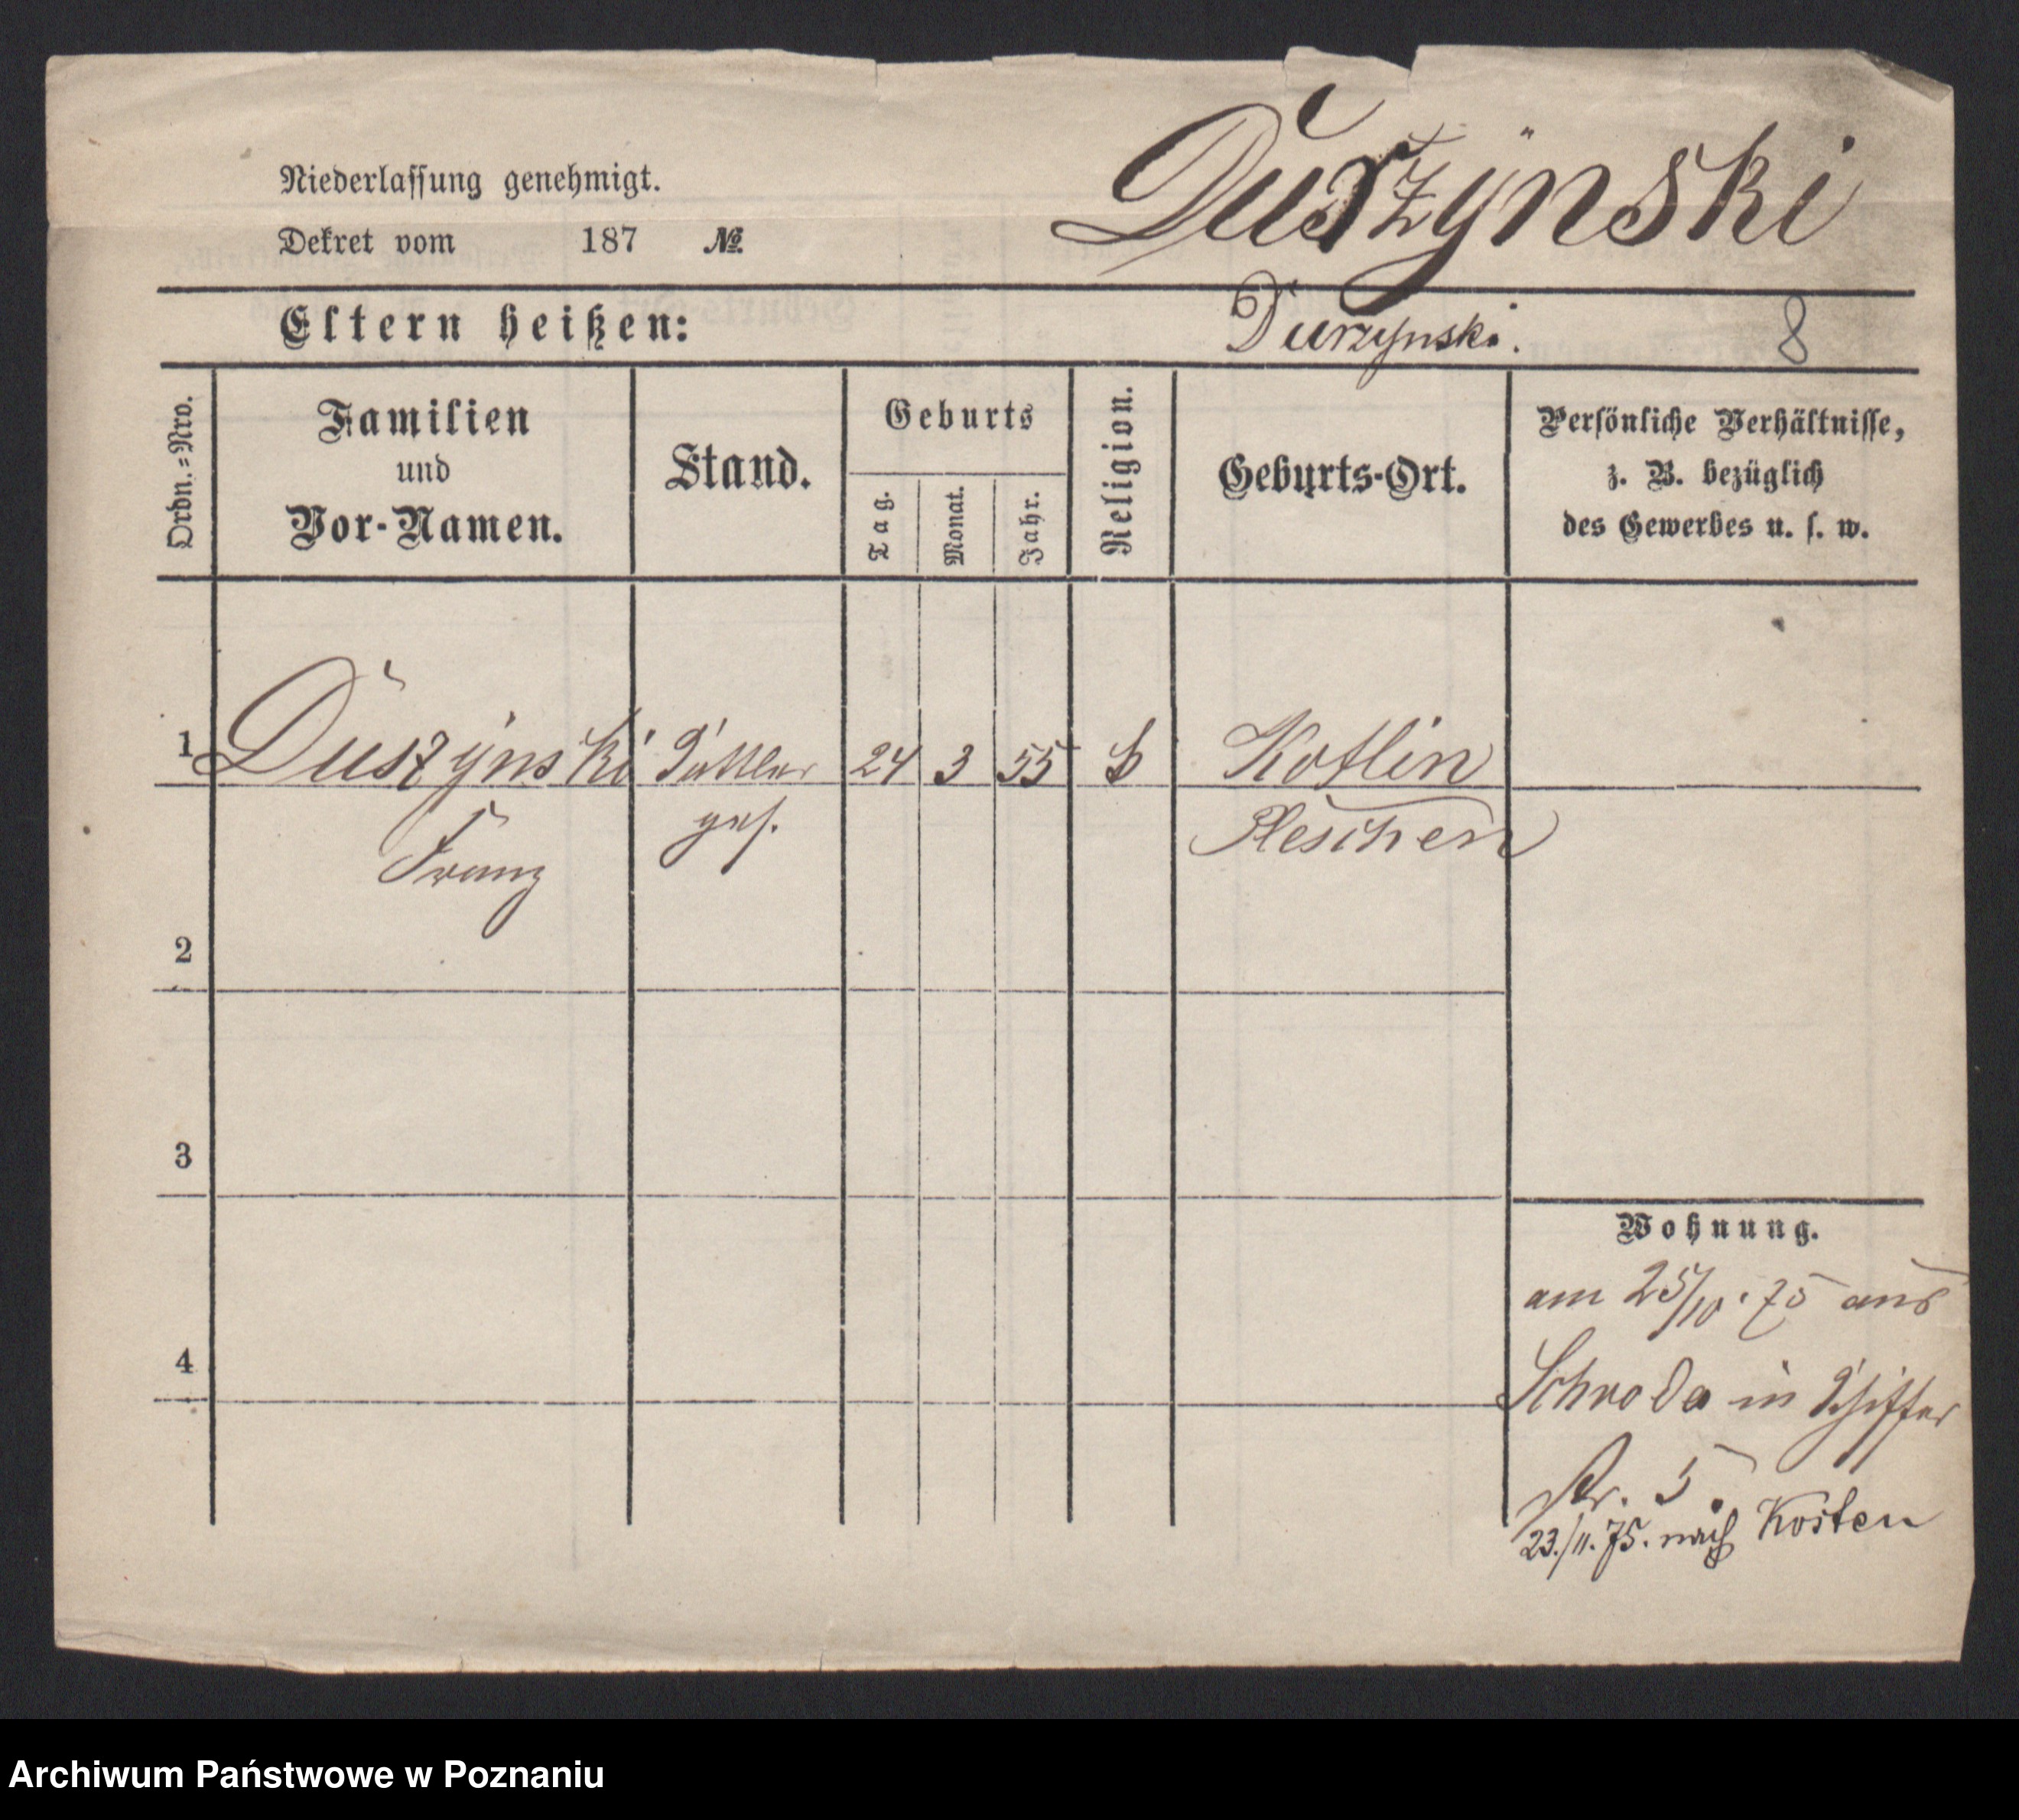 Niederlassung genehmigt.
Dekret vom 187 №
Duszynski
Eltern heißen:
Durzynski.
8
Ordn.=Nro.
Familien
und
Vor-Namen.
Stand.
Geburts
Tag.
Monat.
Jahr.
Religion.
Geburts-Ort.
Persönliche Verhältnisse,
z. B. bezüglich
des Gewerbes u. s. w.
1 Duszynski Sattler 24 3 55 Kotlin
Franz ges. Pleschen
2
3
4
Wohnung.
am 25/10. 75 aus
Schroda in
Str. 5.
23./11. 75. nach Kosten
Archiwum Państwowe w Poznaniu